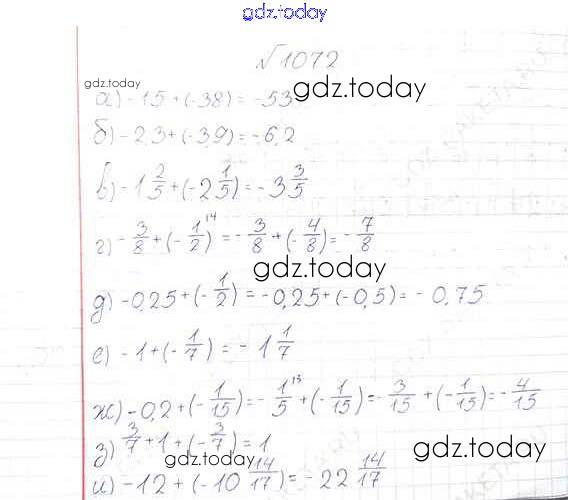 gdz.today
№1072
gdz.today gdz.today
а) -15 + (-38) = -53
б) -2,3 + (-3,9) = -6,2
в) -1 2/5 + (-2 1/5) = -3 3/5
г) -3/8 + (-1/2)^14 = -3/8 + (-4/8) = -7/8
gdz.today
д) -0,25 + (-1/2) = -0,25 + (-0,5) = -0,75
е) -1 + (-1/7) = -1 1/7
ж) -0,2 + (-1/15) = -1/5^13 + (-1/15) = -3/15 + (-1/15) = -4/15
з) 3/7 + 1 + (-3/7) = 1
gdz.today gdz.today
и) -12 + (-10 14/17) = -22 14/17